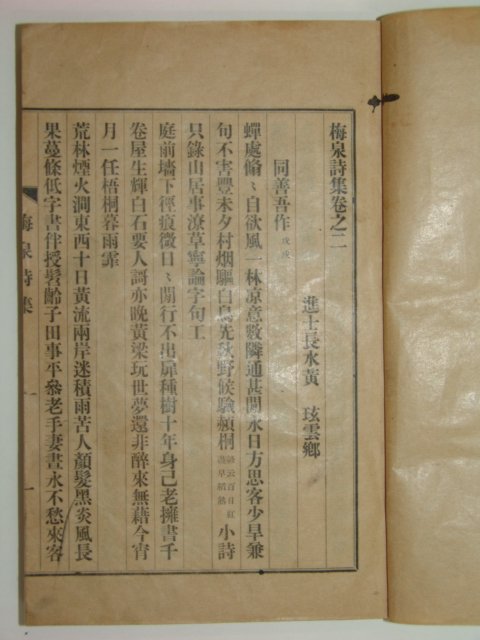 梅泉詩集卷之二
進士長水黃 玹雲卿
同善吾作 戊戌
蟬處翛〻自欲風一林凉意數隣通甚閒永日方思客少旱兼
句不害豐未夕村烟驅白鳥先秋野候驗赬桐 諺云百日紅 小詩
只錄山居事潦草寧論字句工
庭前墻下徑痕微日〻閒行不出扉種樹十年身己老擁書千
卷屋生輝白石要人謌亦晚黃粱玩世夢還非醉來無藉今宵
月一任梧桐暮雨霏
荒林煙火澗東西十日黃流兩岸迷積雨苦人顏髮黑炎風長
果蔓條低字書伴授髫齡子田事平參老手妻晝永不愁來客
梅泉詩集 一